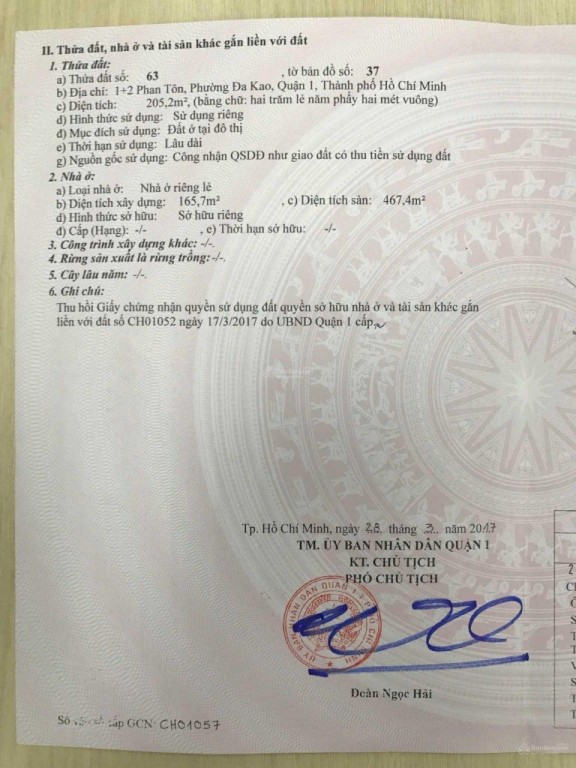 II. Thửa đất, nhà ở và tài sản khác gắn liền với đất
1. Thửa đất:
a) Thửa đất số: 63 , tờ bản đồ số: 37
b) Địa chỉ: 1+2 Phan Tôn, Phường Đa Kao, Quận 1, Thành phố Hồ Chí Minh
c) Diện tích: 205,2m², (bằng chữ: hai trăm lẻ năm phẩy hai mét vuông)
d) Hình thức sử dụng: Sử dụng riêng
đ) Mục đích sử dụng: Đất ở tại đô thị
e) Thời hạn sử dụng: Lâu dài
g) Nguồn gốc sử dụng: Công nhận QSDĐ như giao đất có thu tiền sử dụng đất
2. Nhà ở:
a) Loại nhà ở: Nhà ở riêng lẻ
b) Diện tích xây dựng: 165,7m² , c) Diện tích sàn: 467,4m²
d) Hình thức sở hữu: Sở hữu riêng
đ) Cấp (Hạng): -/- , e) Thời hạn sở hữu: -/-
3. Công trình xây dựng khác: -/-.
4. Rừng sản xuất là rừng trồng:-/-.
5. Cây lâu năm: -/-.
6. Ghi chú:
Thu hồi Giấy chứng nhận quyền sử dụng đất quyền sở hữu nhà ở và tài sản khác gắn
liền với đất số CH01052 ngày 17/3/2017 do UBND Quận 1 cấp.
Tp. Hồ Chí Minh, ngày 28 tháng 3 năm 2017
TM. ỦY BAN NHÂN DÂN QUẬN 1
KT. CHỦ TỊCH
PHÓ CHỦ TỊCH
ỦY BAN NHÂN DÂN QUẬN 1 T.P HỒ CHÍ MINH
Đoàn Ngọc Hải
Số vào sổ cấp GCN: CH01057